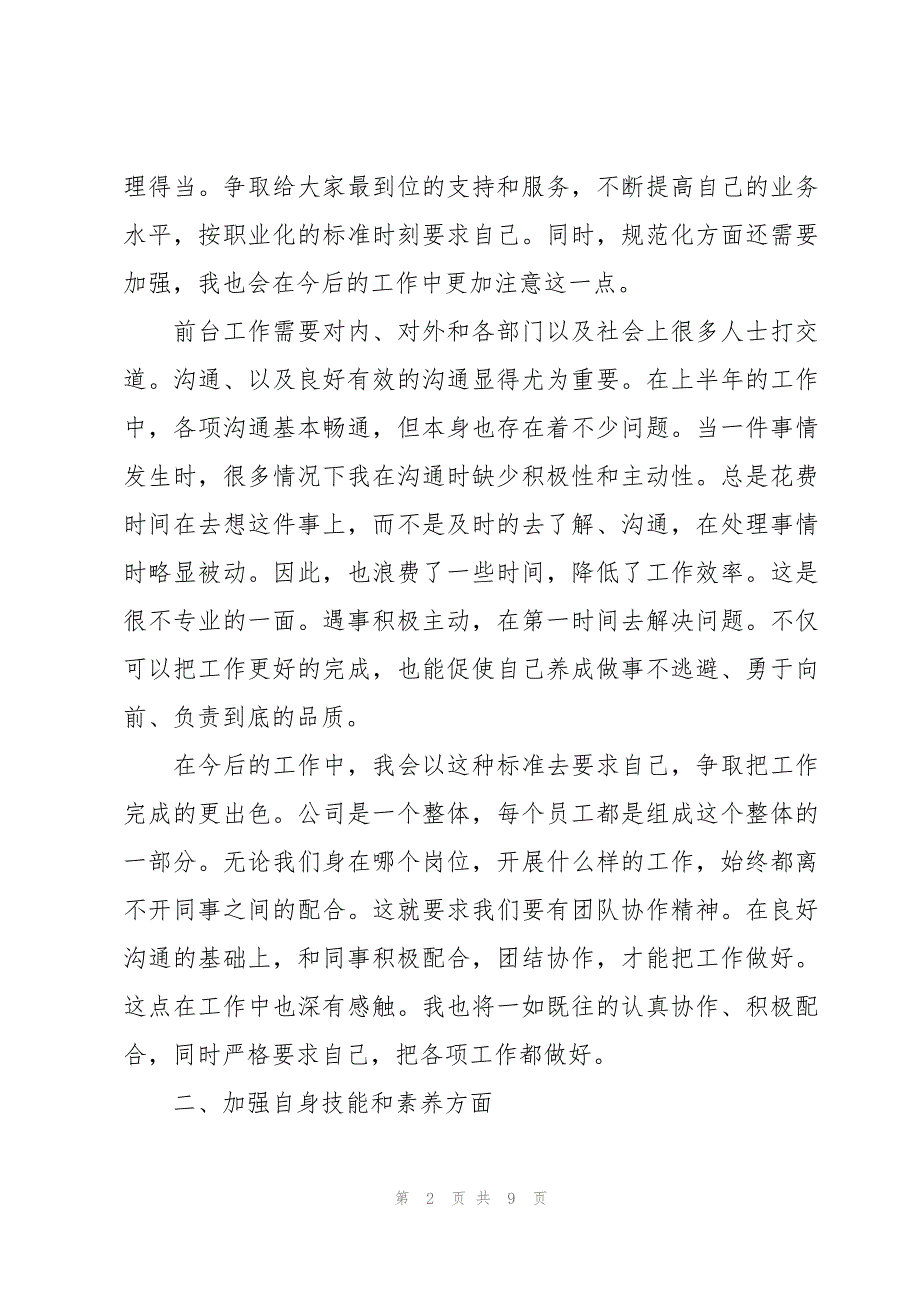 理得当。争取给大家最到位的支持和服务，不断提高自己的业务
水平，按职业化的标准时刻要求自己。同时，规范化方面还需要
加强，我也会在今后的工作中更加注意这一点。
前台工作需要对内、对外和各部门以及社会上很多人士打交
道。沟通、以及良好有效的沟通显得尤为重要。在上半年的工作
中，各项沟通基本畅通，但本身也存在着不少问题。当一件事情
发生时，很多情况下我在沟通时缺少积极性和主动性。总是花费
时间在去想这件事上，而不是及时的去了解、沟通，在处理事情
时略显被动。因此，也浪费了一些时间，降低了工作效率。这是
很不专业的一面。遇事积极主动，在第一时间去解决问题。不仅
可以把工作更好的完成，也能促使自己养成做事不逃避、勇于向
前、负责到底的品质。
在今后的工作中，我会以这种标准去要求自己，争取把工作
完成的更出色。公司是一个整体，每个员工都是组成这个整体的
一部分。无论我们身在哪个岗位，开展什么样的工作，始终都离
不开同事之间的配合。这就要求我们要有团队协作精神。在良好
沟通的基础上，和同事积极配合，团结协作，才能把工作做好。
这点在工作中也深有感触。我也将一如既往的认真协作、积极配
合，同时严格要求自己，把各项工作都做好。
二、加强自身技能和素养方面
第 2 页 共 9 页